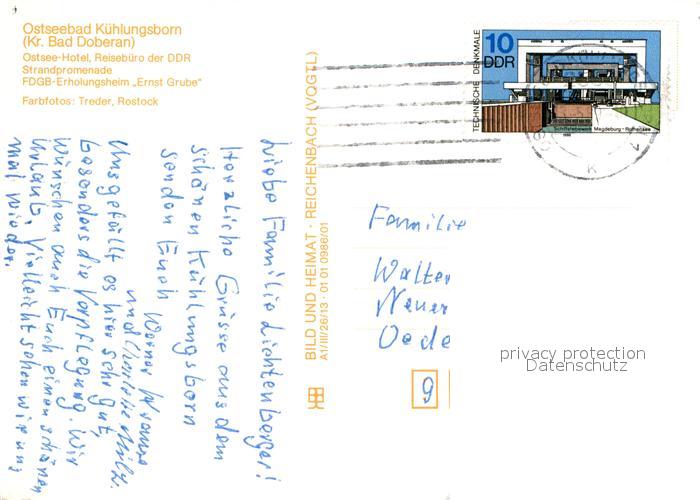 Ostseebad Kühlungsborn
(Kr. Bad Doberan)
Ostsee-Hotel, Reisebüro der DDR
Strandpromenade
FDGB-Erholungsheim „Ernst Grube“
Farbfotos: Treder, Rostock
Liebe Familie Lichtenberger!
Herzliche Grüsse aus dem
schönen Kühlungsborn
senden Euch
Werner
und
Uns gefällt es hier sehr gut,
besonders die Verpflegung. Wir
wünschen auch Euch einen schönen
Urlaub. Vielleicht sehen wir uns
mal wieder.
BILD UND HEIMAT · REICHENBACH (VOGTL)
A1/III/26/13 · 01 01 0986/01
TECHNISCHE DENKMALE
10
DDR
Schiffshebewerk Magdeburg-Rothensee
1988
K
Familie
Walter
Neuer
Oede
9
privacy protection
Datenschutz